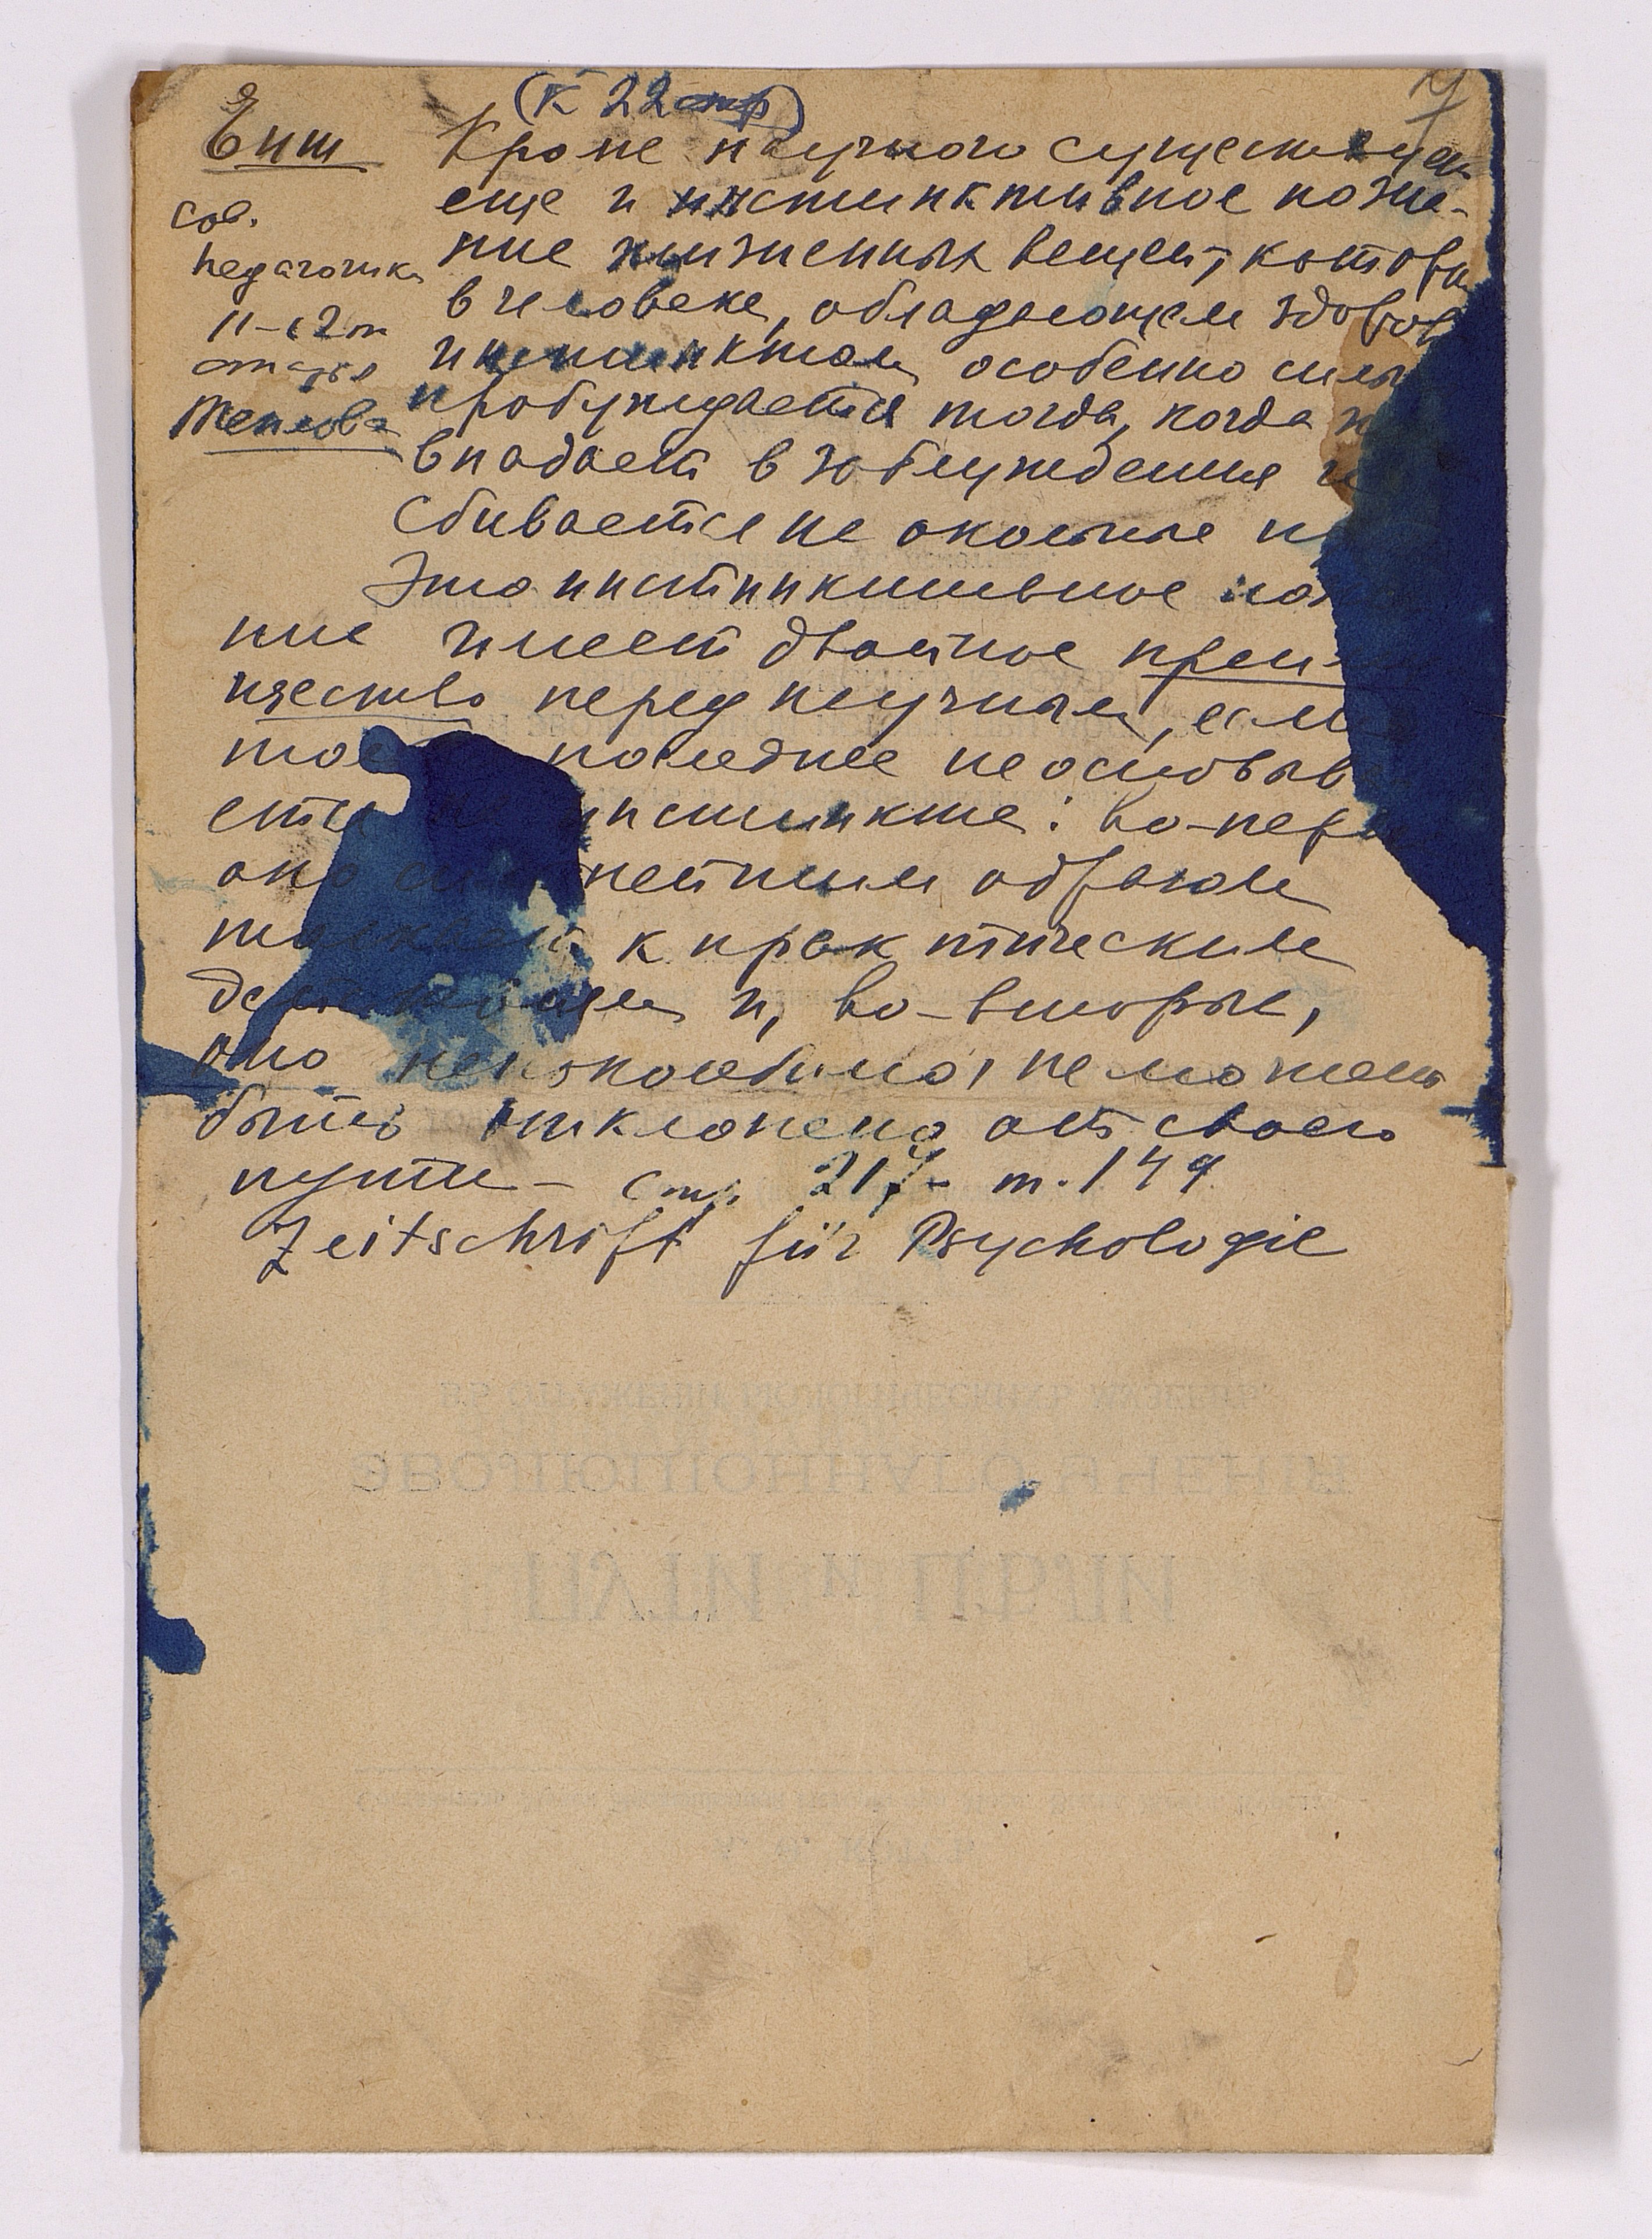 (К 22 стр)
7
Енш
сов.
педагогика
11-12 т
статья
Теплова
Кроме научного существует
еще и инстинктивное позна-
ние жизненных вещей, которое
в человеке, обладающем здоров
инстинктом, особенно сильн
пробуждается тогда, когда н
впадает в заблуждения и
сбивается на окольные п
Это инстинктивное позн
ние имеет двойное преим
щество перед научным, если
то последнее не основыва
ется на инстинкте: во-первы
оно сильнейшим образом
толкает к практическим
действиям и, во-вторых,
оно непоколебимо, не может
быть отклонено от своего
пути - стр 217- т. 149
Zeitschrift für Psychologie
ЭВОЛЮЦИОННАГО УЧЕНIЯ
ПУТИ и ЦѢЛИ